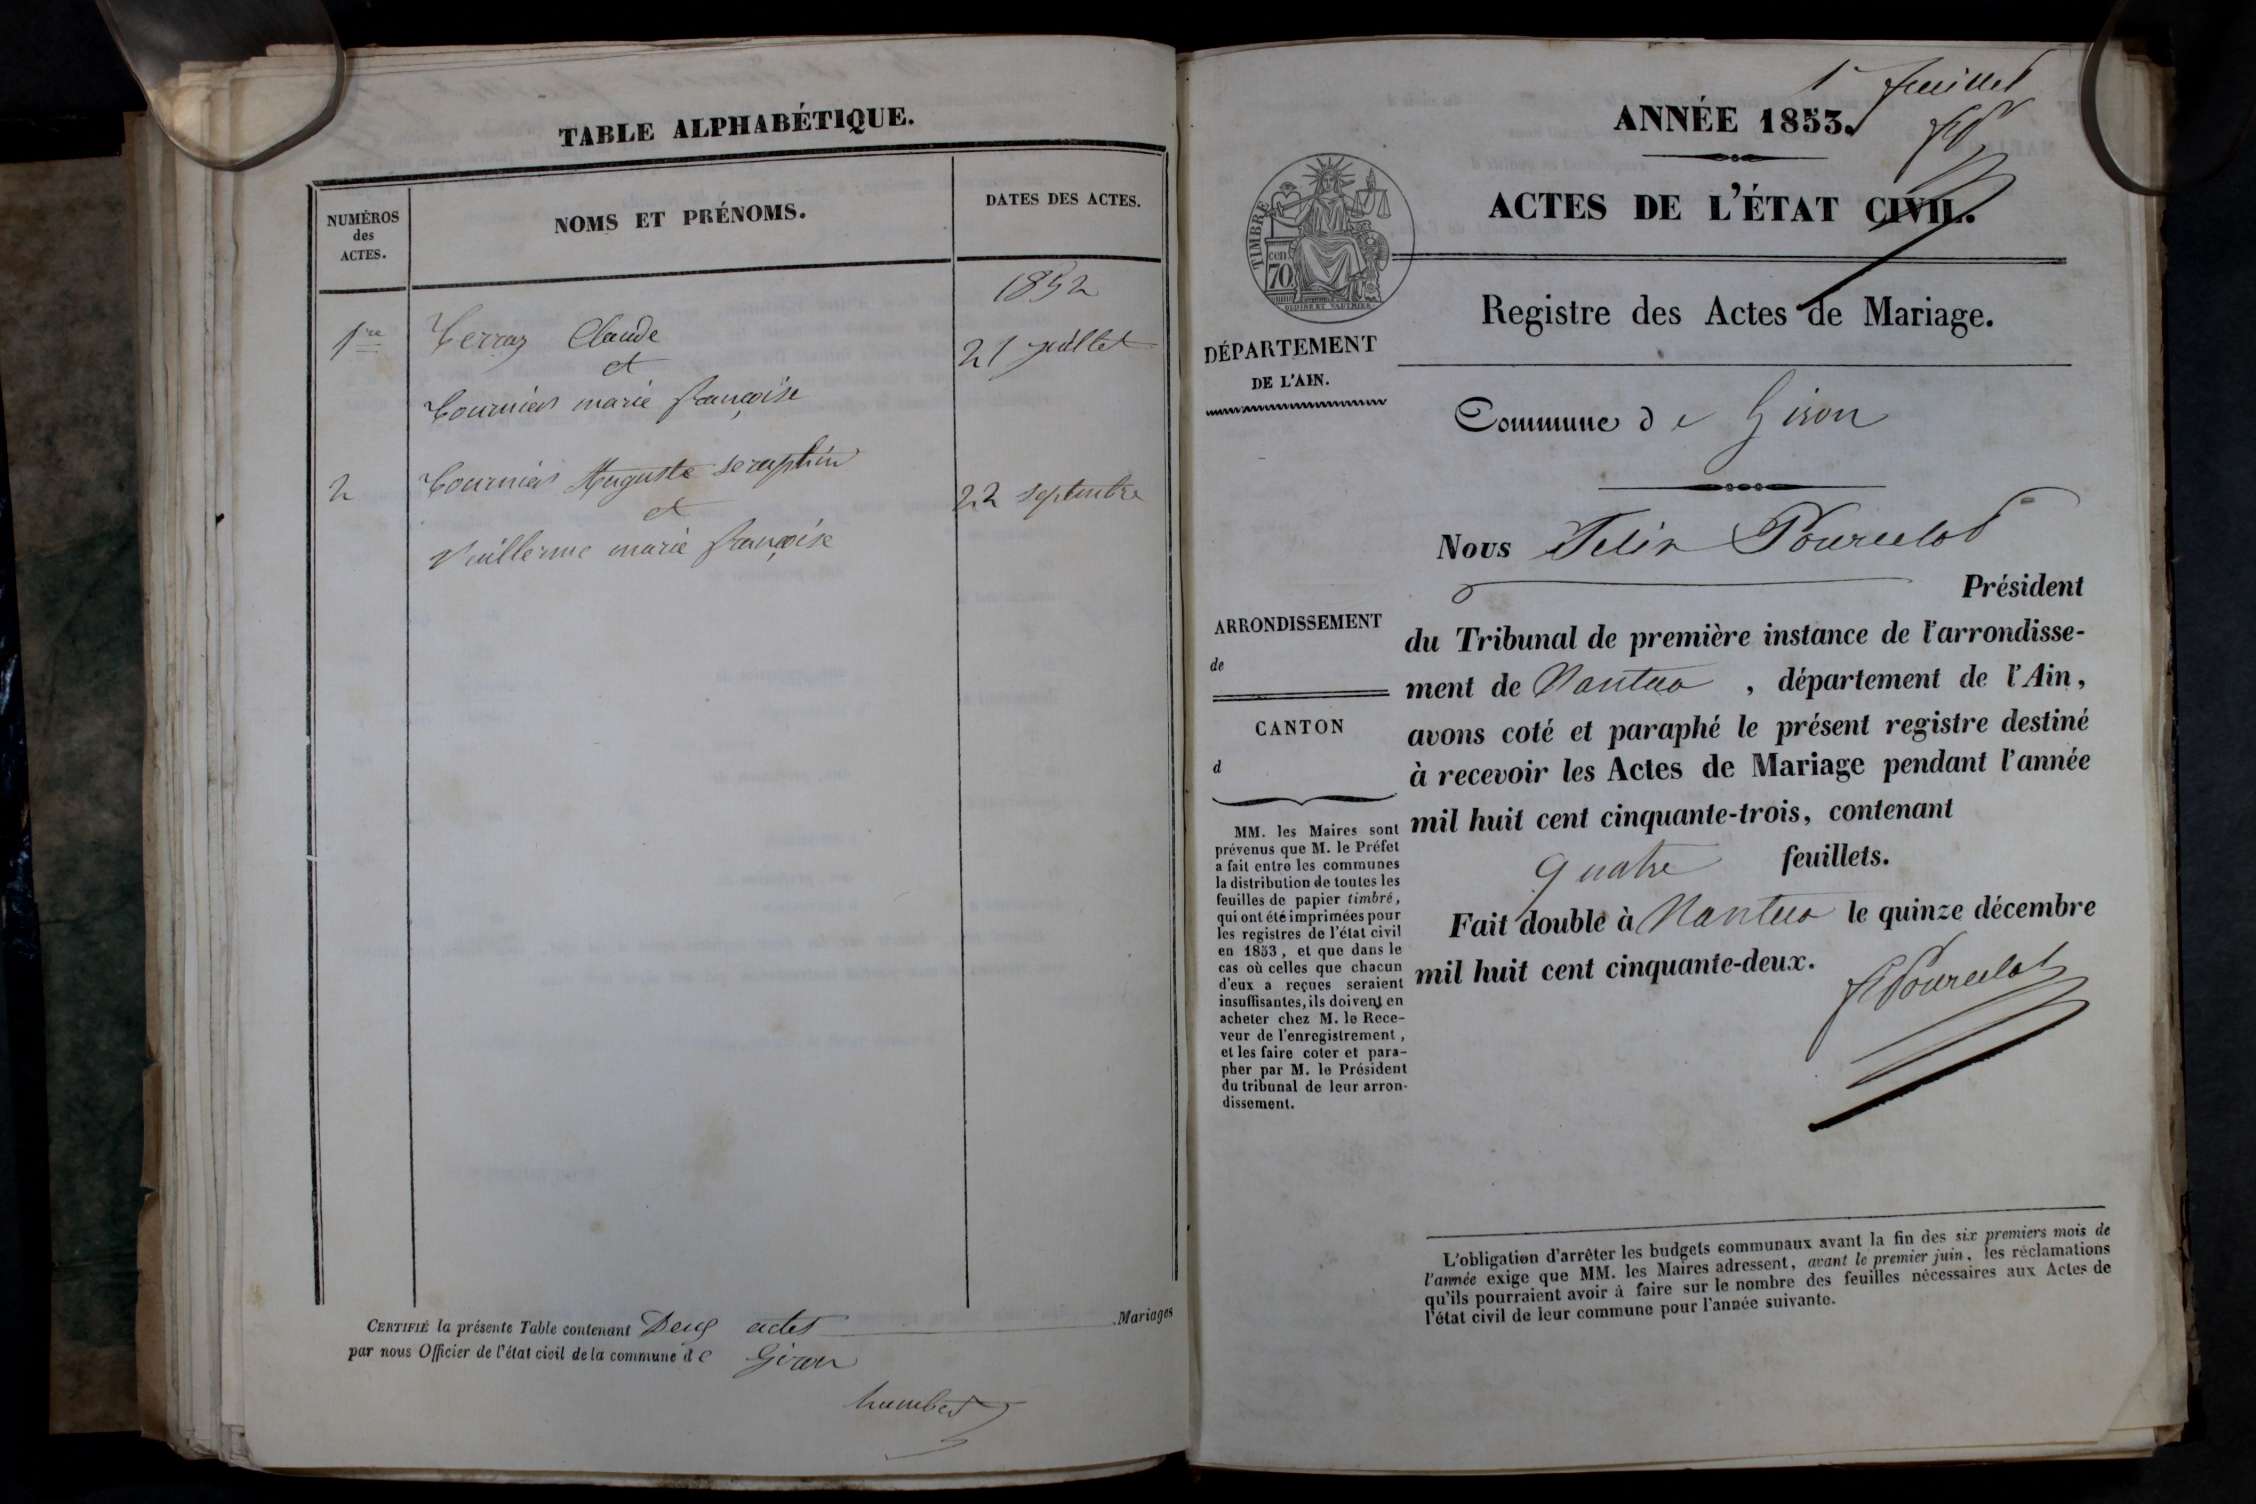 TABLE ALPHABÉTIQUE.
NUMÉROS
des
ACTES.
NOMS ET PRÉNOMS.
DATES DES ACTES.
1852
1re
Terraz Claude
21 juillet
et
Tournier marie françoise
2
Tournier Auguste seraphin
22 septembre
et
Vuillerme marie françoise
CERTIFIÉ la présente Table contenant Deux actes Mariages
par nous Officier de l'état civil de la commune de Giron
humbert
1r feuillet
ANNÉE 1853.
ACTES DE L'ÉTAT CIVIL.
TIMBRE
70
cen
Registre des Actes de Mariage.
DÉPARTEMENT
DE L'AIN.
Commune de Giron
Nous Félix Pourcelot
Président
ARRONDISSEMENT
de
du Tribunal de première instance de l'arrondisse-
ment de Nantua , département de l'Ain,
CANTON
d
avons coté et paraphé le présent registre destiné
à recevoir les Actes de Mariage pendant l'année
mil huit cent cinquante-trois, contenant
quatre feuillets.
Fait double à Nantua le quinze décembre
mil huit cent cinquante-deux.
FPourcelot
MM. les Maires sont
prévenus que M. le Préfet
a fait entre les communes
la distribution de toutes les
feuilles de papier timbré,
qui ont été imprimées pour
les registres de l'état civil
en 1853, et que dans le
cas où celles que chacun
d'eux a reçues seraient
insuffisantes, ils doivent en
acheter chez M. le Rece-
veur de l'enregistrement,
et les faire coter et para-
pher par M. le Président
du tribunal de leur arron-
dissement.
L'obligation d'arrêter les budgets communaux avant la fin des six premiers mois de
l'année exige que MM. les Maires adressent, avant le premier juin, les réclamations
qu'ils pourraient avoir à faire sur le nombre des feuilles nécessaires aux Actes de
l'état civil de leur commune pour l'année suivante.